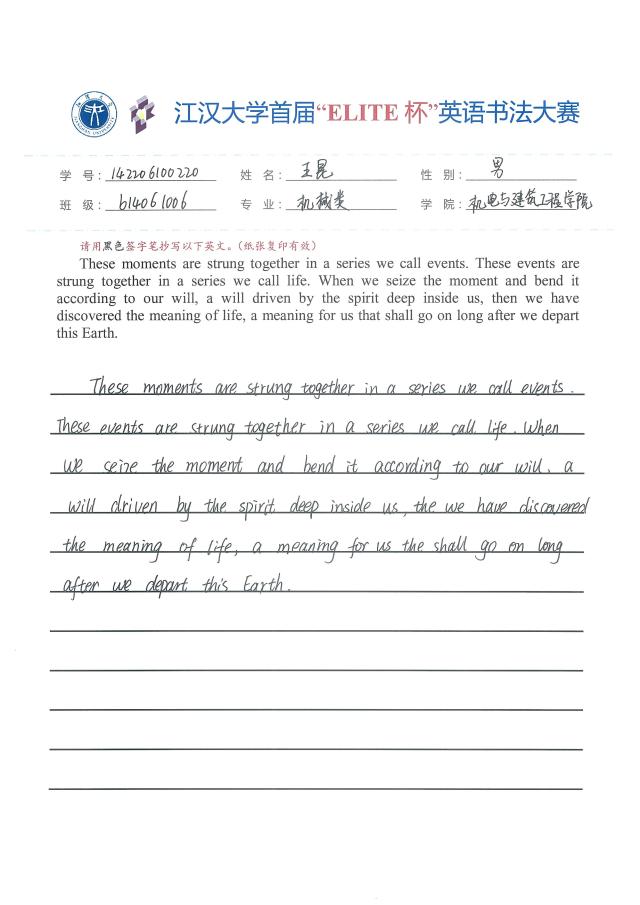 江汉大学首届“ELITE 杯”英语书法大赛
学 号: 142206100220 姓 名: 王昆 性 别: 男
班 级: b14061006 专 业: 机械类 学 院: 机电与建筑工程学院
请用黑色签字笔抄写以下英文。(纸张复印有效)
These moments are strung together in a series we call events. These events are
strung together in a series we call life. When we seize the moment and bend it
according to our will, a will driven by the spirit deep inside us, then we have
discovered the meaning of life, a meaning for us that shall go on long after we depart
this Earth.
These moments are strung together in a series we call events.
These events are strung together in a series we call life. When
we seize the moment and bend it according to our will, a
will driven by the spirit deep inside us, the we have discovered
the meaning of life, a meaning for us the shall go on long
after we depart this Earth.